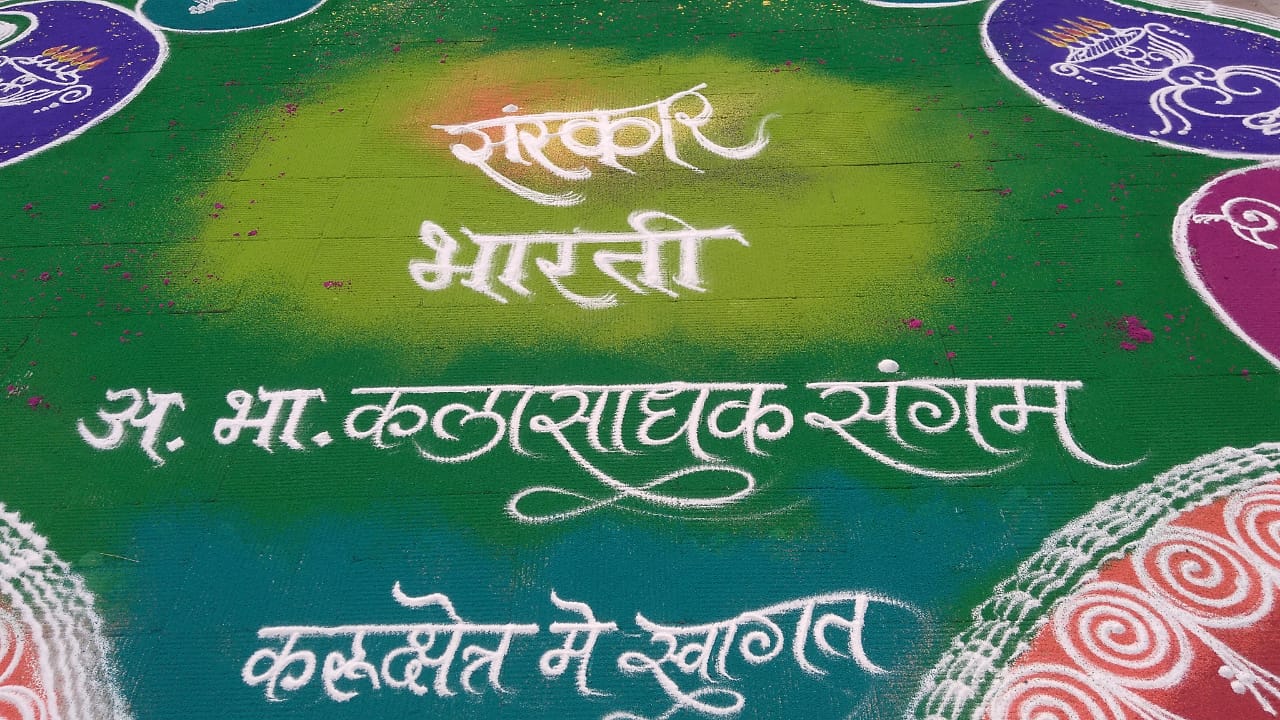 संस्कार
भारती
अ. भा. कलासाधक संगम
करूक्षेत्र मे स्वागत